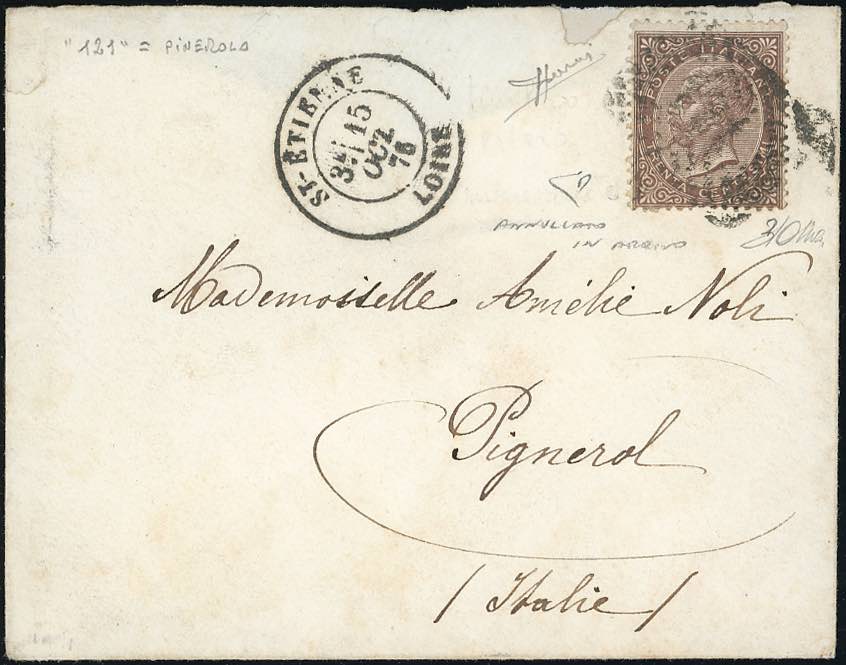 "121" = PINEROLO
ST-ETIENNE
3E
15
OCT.
76
LOIRE
POSTE ITALIANE
TRENTA CENTESIMI
ANNULLATO
IN ARRIVO
Mademoiselle Amélie Noli
Pignerol
/ Italie /